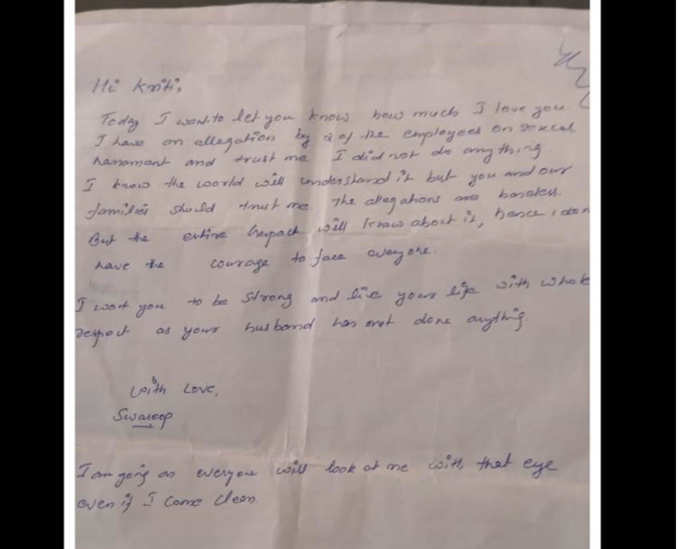 Hi Kriti,
Today I want to let you know how much I love you
I have an allegation by 2 of the employees on sexual
harasment and trust me I did not do anything
I know the world will understand it but you and our
families should trust me. The allegations are baseless.
But the entire will know about it, hence I don
have the courage to face everyone.
I want you to be strong and live your life with whole
respect as your husband has not done anything
with Love,
Swaroop
I am going as everyone will look at me with that eye
even if I come clean